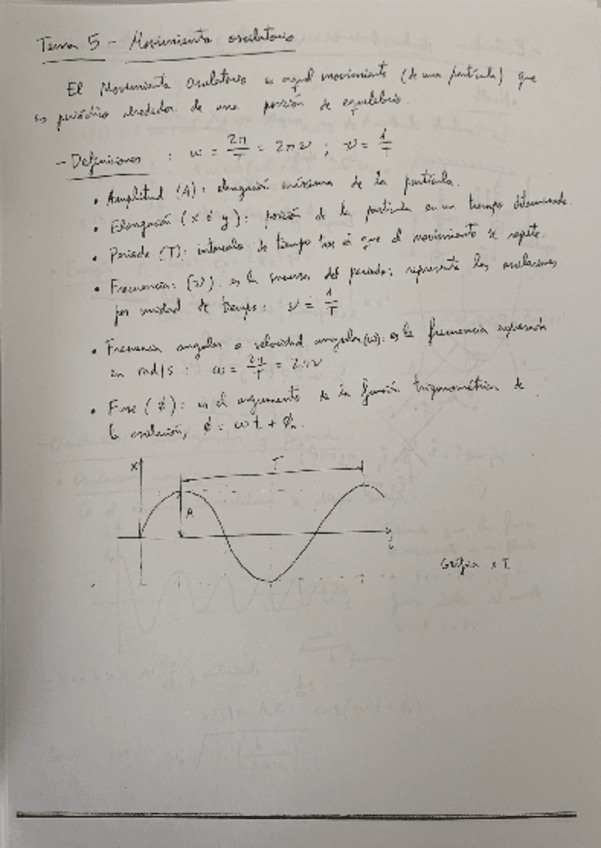 Tema 5 - Movimiento oscilatorio
El Movimiento Oscilatorio es aquel movimiento (de una partícula) que
es periódico alrededor de una posición de equilibrio.
- Definiciones : ω = 2π/T = 2πν ; ν = 1/T
• Amplitud (A): elongación máxima de la partícula.
• Elongación (x ó y): posición de la partícula en un tiempo determinado.
• Periodo (T): intervalo de tiempo tras el que el movimiento se repite.
• Frecuencia: (ν). es la inversa del periodo; representa las oscilaciones
por unidad de tiempo: ν = 1/T
• Frecuencia angular o velocidad angular (ω): es la frecuencia expresada
en rad/s : ω = 2π/T = 2πν
• Fase (φ): es el argumento de la función trigonométrica de
la oscilación, φ = ωt + φ₀.
X T
A
t
Gráfica x T.